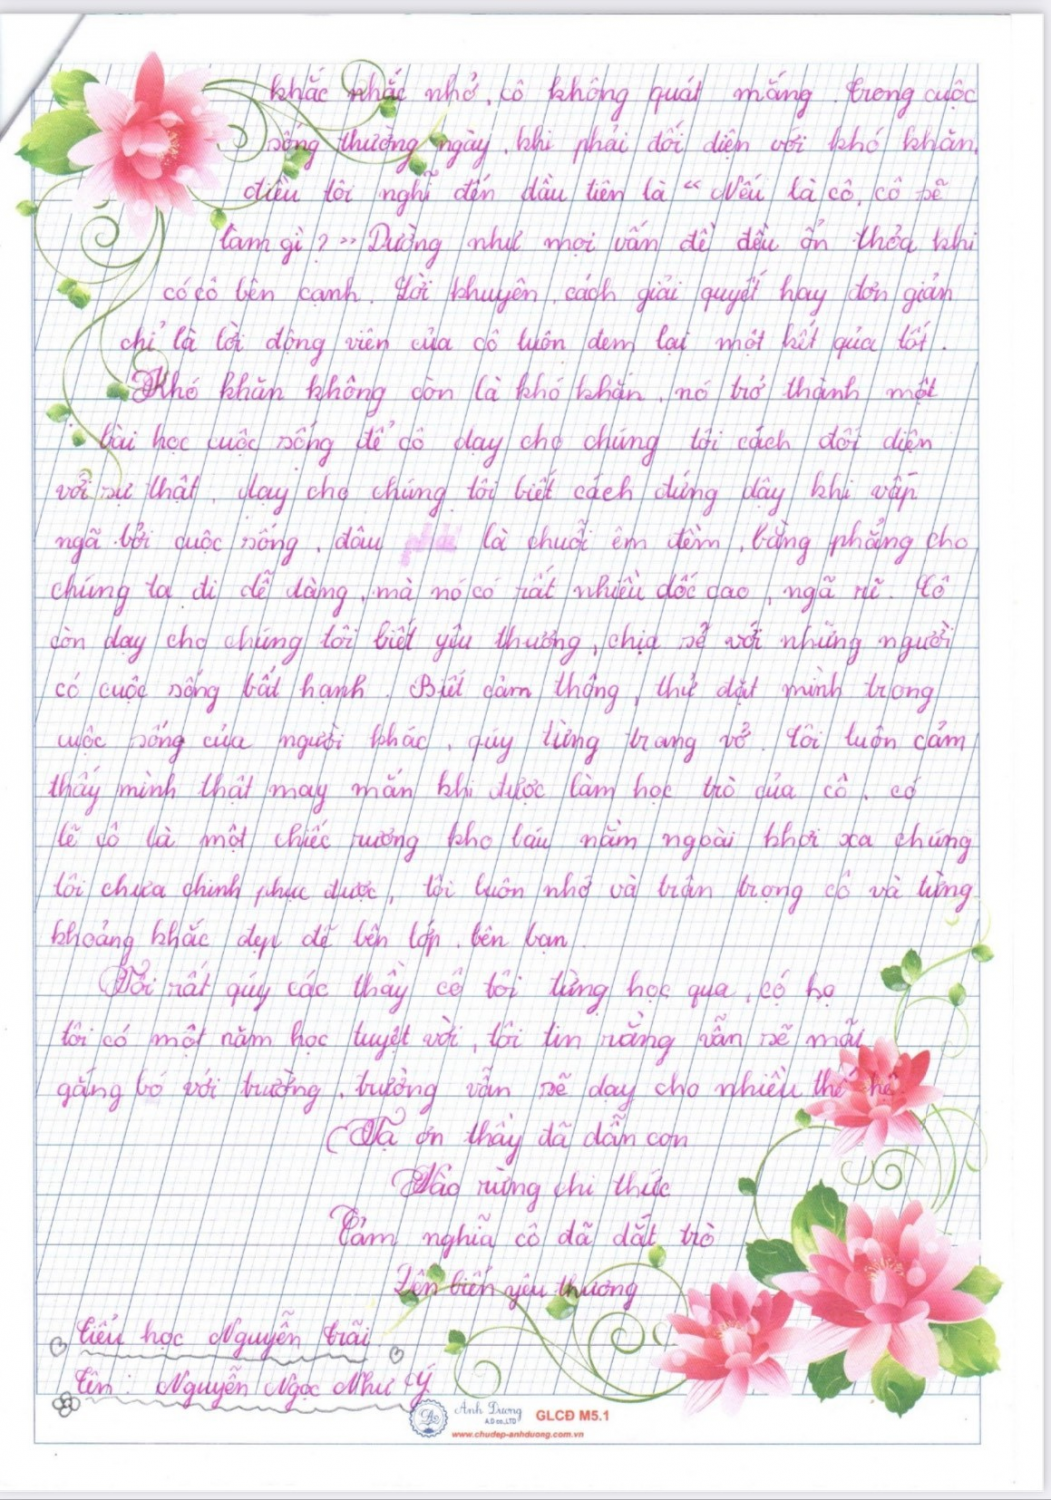 khắc nhắc nhở, cô không quát mắng. Trong cuộc
sống thường ngày, khi phải đối diện với khó khăn,
điều tôi nghĩ đến đầu tiên là " Nếu là cô, cô sẽ
làm gì ? " Dường như mọi vấn đề đều ổn thỏa khi
có cô bên cạnh. Lời khuyên, cách giải quyết hay đơn giản
chỉ là lời động viên của cô luôn đem lại một kết qủa tốt.
Khó khăn không còn là khó khăn, nó trở thành một
bài học cuộc sống để cô dạy cho chúng tôi cách đối diện
với sự thật, dạy cho chúng tôi biết cách đứng dậy khi vấp
ngã bởi cuộc sống, đâu phải là chuỗi êm đềm, bằng phẳng cho
chúng ta đi dễ dàng, mà nó có rất nhiều dốc cao, ngã rẽ. Cô
còn dạy cho chúng tôi biết yêu thương, chia sẻ với những người
có cuộc sống bất hạnh. Biết cảm thông, thử đặt mình trong
cuộc sống của người khác, qúy từng trang vở. Tôi luôn cảm
thấy mình thật may mắn khi được làm học trò của cô, có
lẽ cô là một chiếc rương kho báu nằm ngoài khơi xa chúng
tôi chưa chinh phục được, tôi luôn nhớ và trân trọng cô và từng
khoảng khắc đẹp đẽ bên lớp, bên bạn.
Tôi rất qúy các thầy cô tôi từng học qua, có họ
tôi có một năm học tuyệt vời, tôi tin rằng vẫn sẽ mãi
gắng bó với trường, trường vẫn sẽ dạy cho nhiều thế hệ.
Tạ ơn thầy đã dẫn con
Vào rừng chi thức
Cảm nghĩa cô đã dắt trò
Lên biển yêu thương
Tiểu học Nguyễn Trãi
Tên: Nguyễn Ngọc Như Ý
Ánh Dương
A.D co.,LTD
GLCĐ M5.1
www.chudep-anhduong.com.vn